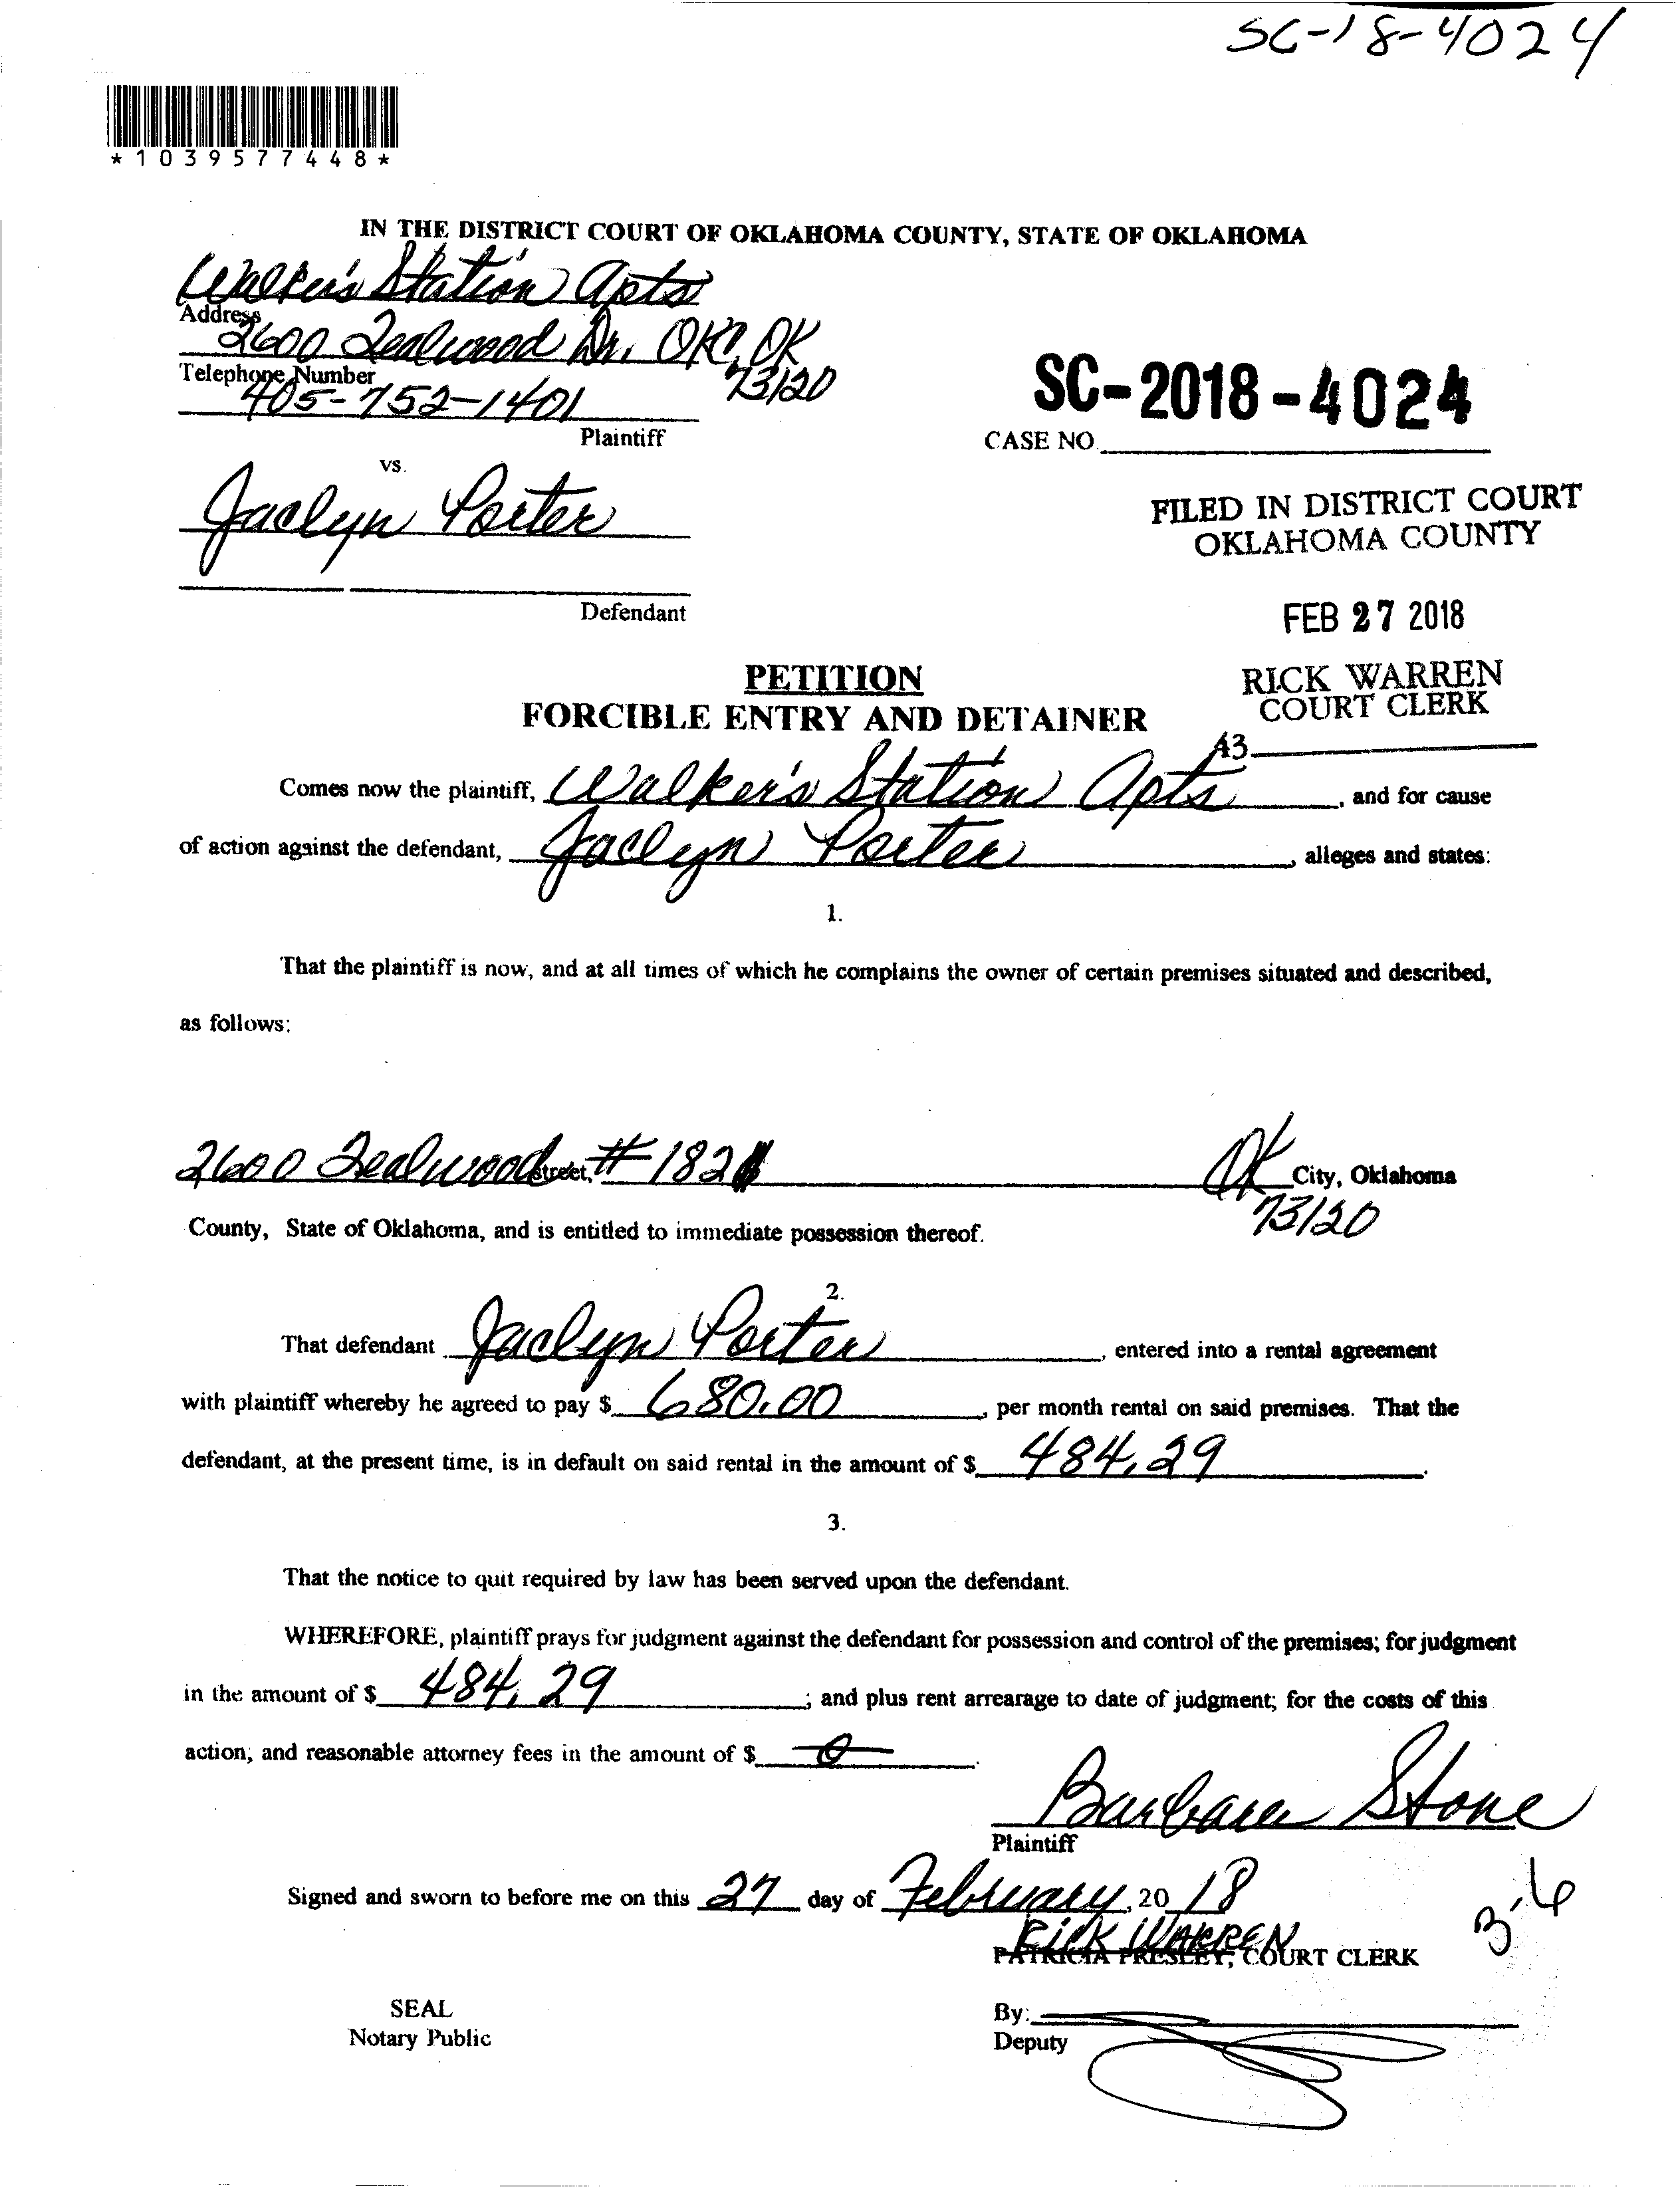 SC-18-4024
*1039577448*
IN THE DISTRICT COURT OF OKLAHOMA COUNTY, STATE OF OKLAHOMA
Walker's Station Apts
Address
2600 Tealwood Dr. OKC, OK
73120
Telephone Number
405-752-1401
Plaintiff
SC-2018-4024
CASE NO.
vs.
Jaclyn Porter
Defendant
FILED IN DISTRICT COURT
OKLAHOMA COUNTY
FEB 27 2018
RICK WARREN
COURT CLERK
43
PETITION
FORCIBLE ENTRY AND DETAINER
Comes now the plaintiff, Walker's Station Apts, and for cause
of action against the defendant, Jaclyn Porter, alleges and states:
1.
That the plaintiff is now, and at all times of which he complains the owner of certain premises situated and described,
as follows:
2600 Tealwood street, # 182 OK City, Oklahoma
73120
County, State of Oklahoma, and is entitled to immediate possession thereof.
2.
That defendant Jaclyn Porter, entered into a rental agreement
with plaintiff whereby he agreed to pay $ 680.00, per month rental on said premises. That the
defendant, at the present time, is in default on said rental in the amount of $ 484.29.
3.
That the notice to quit required by law has been served upon the defendant.
WHEREFORE, plaintiff prays for judgment against the defendant for possession and control of the premises; for judgment
in the amount of $ 484.29; and plus rent arrearage to date of judgment; for the costs of this
action, and reasonable attorney fees in the amount of $ 0.
Barbara Stone
Plaintiff
Signed and sworn to before me on this 27 day of February, 20 18
3-6
RICK WARREN
PATRICIA PRESLEY, COURT CLERK
SEAL
Notary Public
By:
Deputy